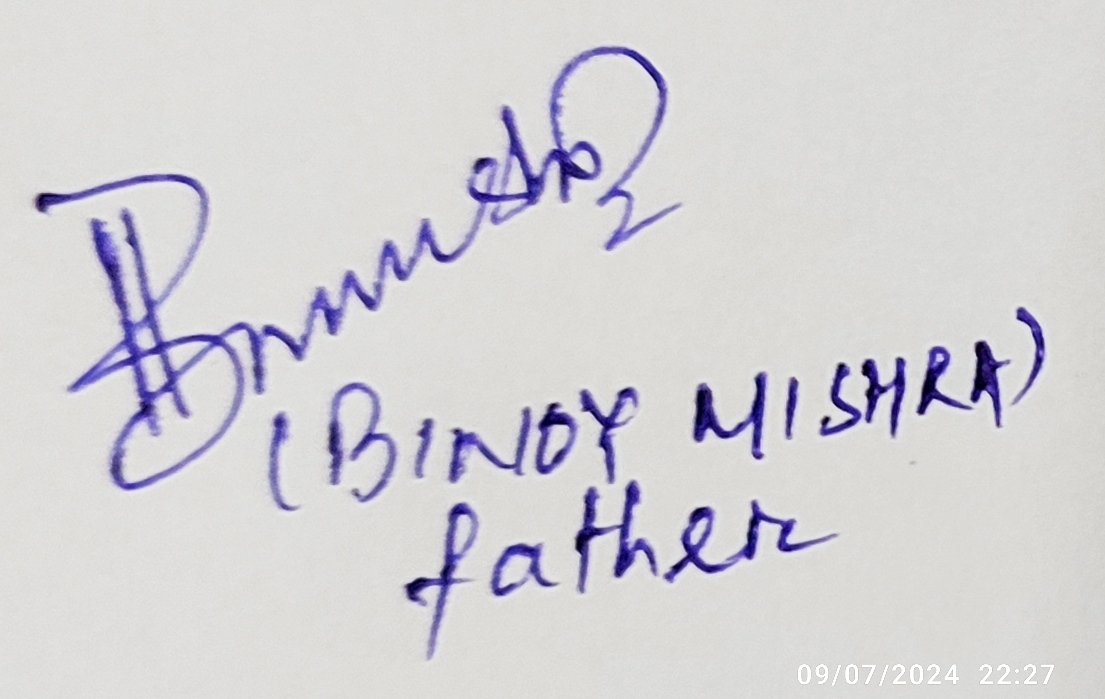 (BINOY MISHRA)
father
09/07/2024 22:27